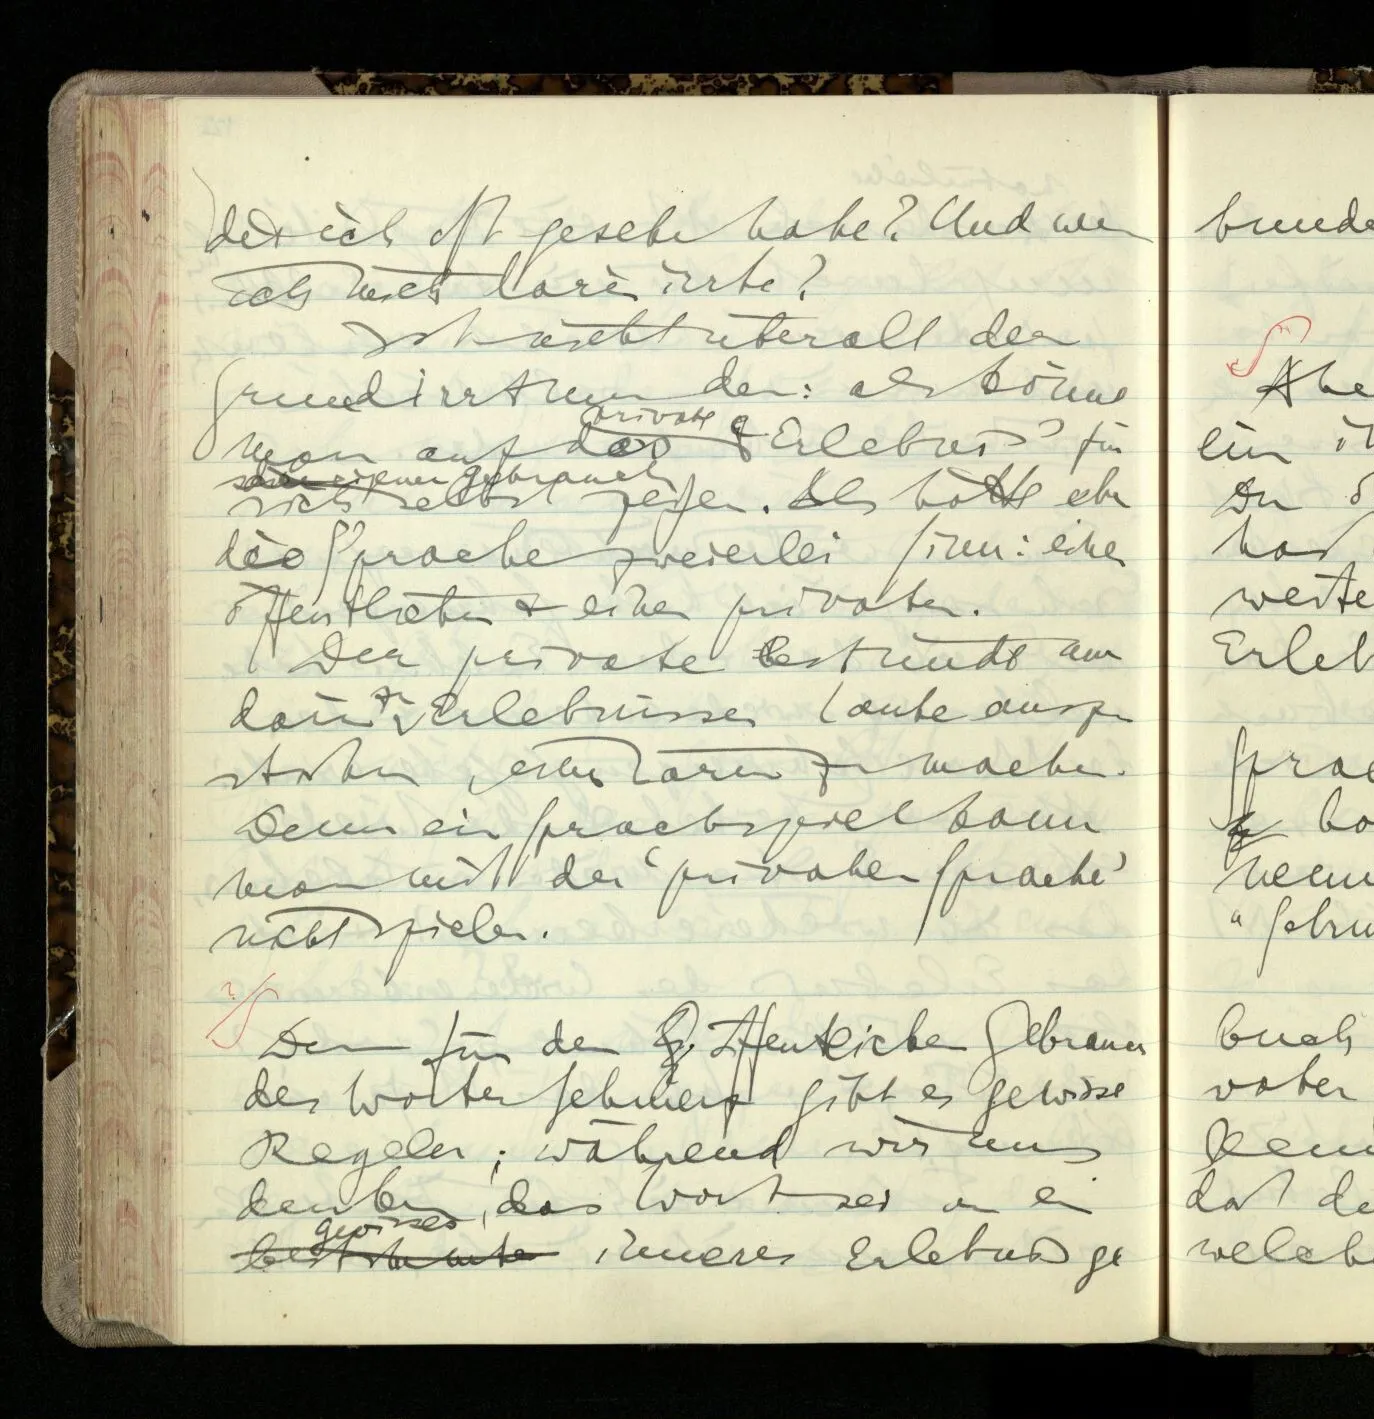 der ich oft gesehen habe? Und wenn
ich mich darin irrte?
Ist nicht überall der
Grundirrtum der: als könne
private
man auf das 'Erlebnis' für
eigenen Gebrauch
sich selbst zeigen. Als hätte also
die Sprache zweierlei Sinn: einen
öffentlichen & einen privaten.
Der private bestünde nur
darin zu Erlebnissen Laute auszu
stoßen, einen Lärm zu machen.
Denn ein Sprachspiel kann
man mit der 'privaten Sprache'
nicht spielen.
?
Denn für den öffentlichen Gebrauch
des Wortes Schmerz gibt es gewisse
Regeln; während wir uns
denken, das Wort sei an ein
gewisses
bestimmtes inneres Erlebnis ge
Abe
ein
Du
has
weite
Erleb
Sprac
"Gebru
welch